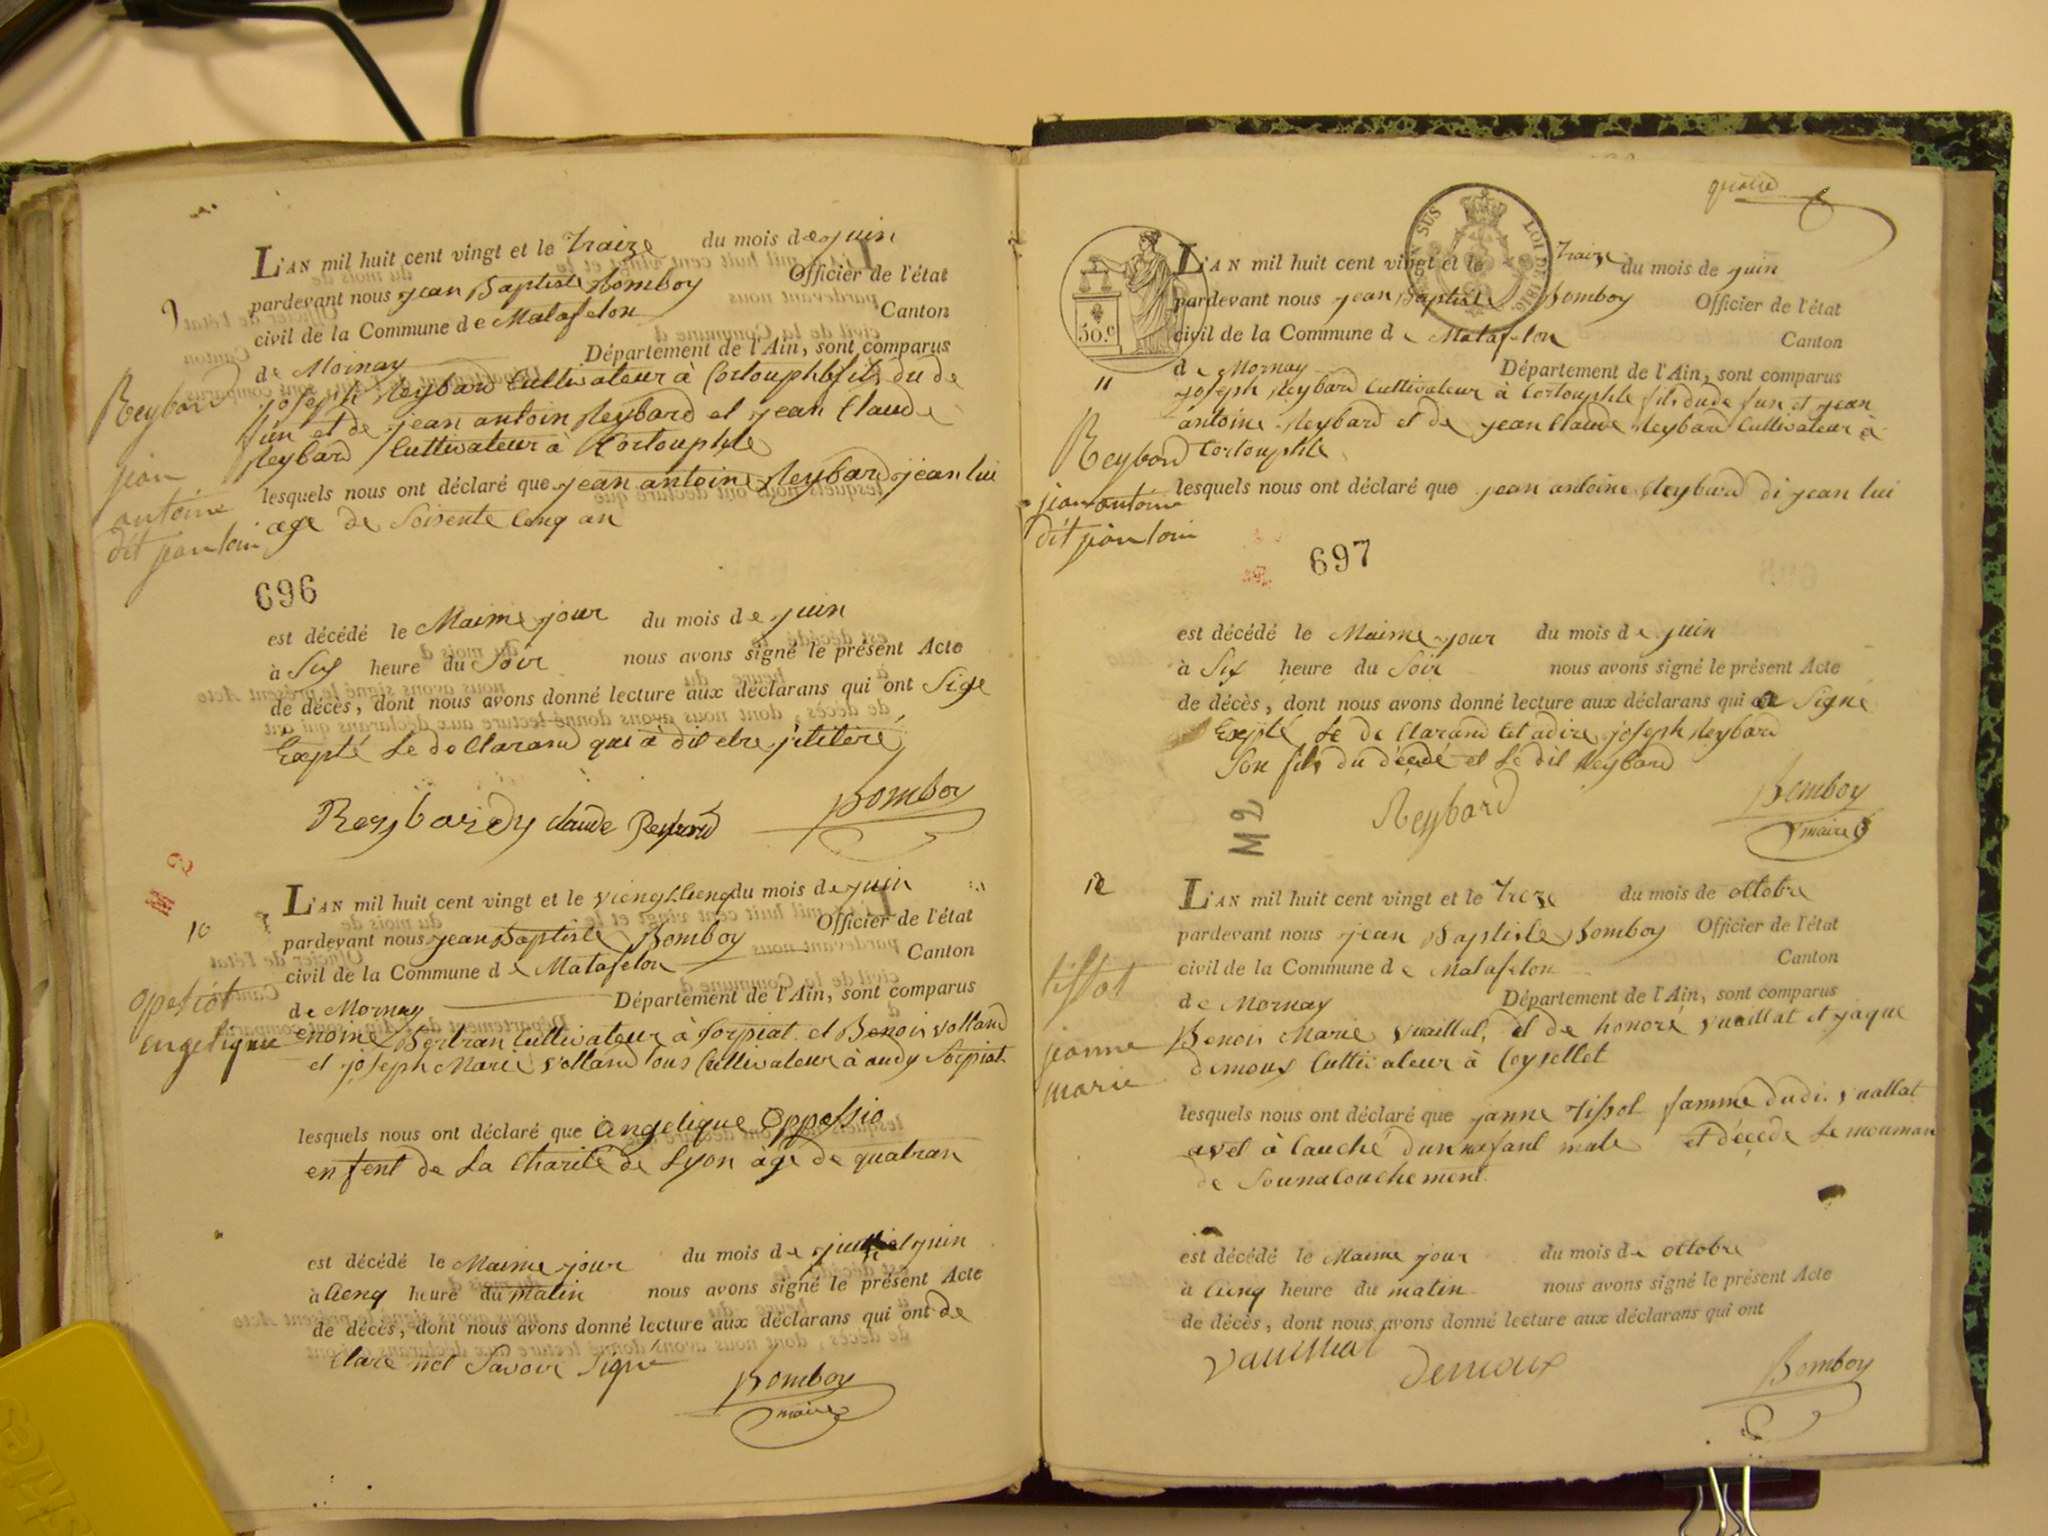 L'AN mil huit cent vingt et le Traize du mois de juin
pardevant nous jean Baptiste Bomboy Officier de l'état
civil de la Commune de Matafelon Canton
de Mornay Département de l'Ain, sont comparus
joseph Reybard Cultivateur à Cortouphle fils du de
fun et de jean antoin Reybard et jean Claude
Reybard Cultivateur à Cortouphle
Reybard
jean
antoine
dit jean loui
lesquels nous ont déclaré que jean antoine Reybard jean lui
age de Soisente Cenq an
696
est décédé le Maime jour du mois de juin
à Six heure du Soir nous avons signé le présent Acte
de décès, dont nous avons donné lecture aux déclarans qui ont Sige
Exepté le declarand qui à dit etre
Reybard j claude Reybard Bomboy
10
L'AN mil huit cent vingt et le viengt Cienq du mois de juin
pardevant nous jean Baptiste Bomboy Officier de l'état
civil de la Commune de Matafelon Canton
de Mornay Département de l'Ain, sont comparus
enome Bertran Cultivateur à Sorpiat et Benois volland
et joseph Marie volland tous Cultivateur à audy Sorpiat
opesiot
engelique
lesquels nous ont déclaré que Angelique Oppessio
enfent de La Charité de Lyon âge de quatran
est décédé le Maime jour du mois de juin
à Cienq heure du matin nous avons signé le présent Acte
de décès, dont nous avons donné lecture aux déclarans qui ont de
Clare net Savoir Signé
Bomboy
maire
quatre
TIMBRE SUS LOI DE 1816
50.c
L'AN mil huit cent vingt et le Traize du mois de juin
pardevant nous jean Baptiste Bomboy Officier de l'état
civil de la Commune de Matafelon Canton
de Mornay Département de l'Ain, sont comparus
11
joseph Reybard Cultivateur à Cortouphle fils dude fun et jean
antoine Reybard et de jean Claude Reybard Cultivateur à
Cortouphle
Reybard
jean antoine
dit jean loui
lesquels nous ont déclaré que jean antoine Reybard di jean lui
697
est décédé le Maime jour du mois de juin
à Six heure du Soir nous avons signé le présent Acte
de décès, dont nous avons donné lecture aux déclarans qui a Signé
Exepté le de Clarand Cet adire joseph Reybard
Son fils du décédé et le dit Reybard
Reybard Bomboy
maire
M 2
12
L'AN mil huit cent vingt et le Treze du mois de ottobre
pardevant nous jean Baptiste Bomboy Officier de l'état
civil de la Commune de Matafelon Canton
de Mornay Département de l'Ain, sont comparus
Benois Marie vuaillat, et de honoré vuaillat et jaque
demoux Cultivateur à Coysellet
tissot
jeanne
marie
lesquels nous ont déclaré que janne Tissot famme dudi vuallat
avet à Cauché dun nefant male et décéde le mouman
de Sounacouchement
est décédé le Maime jour du mois de ottobre
à Cienq heure du matin nous avons signé le présent Acte
de décès, dont nous avons donné lecture aux déclarans qui ont
demoux Bomboy